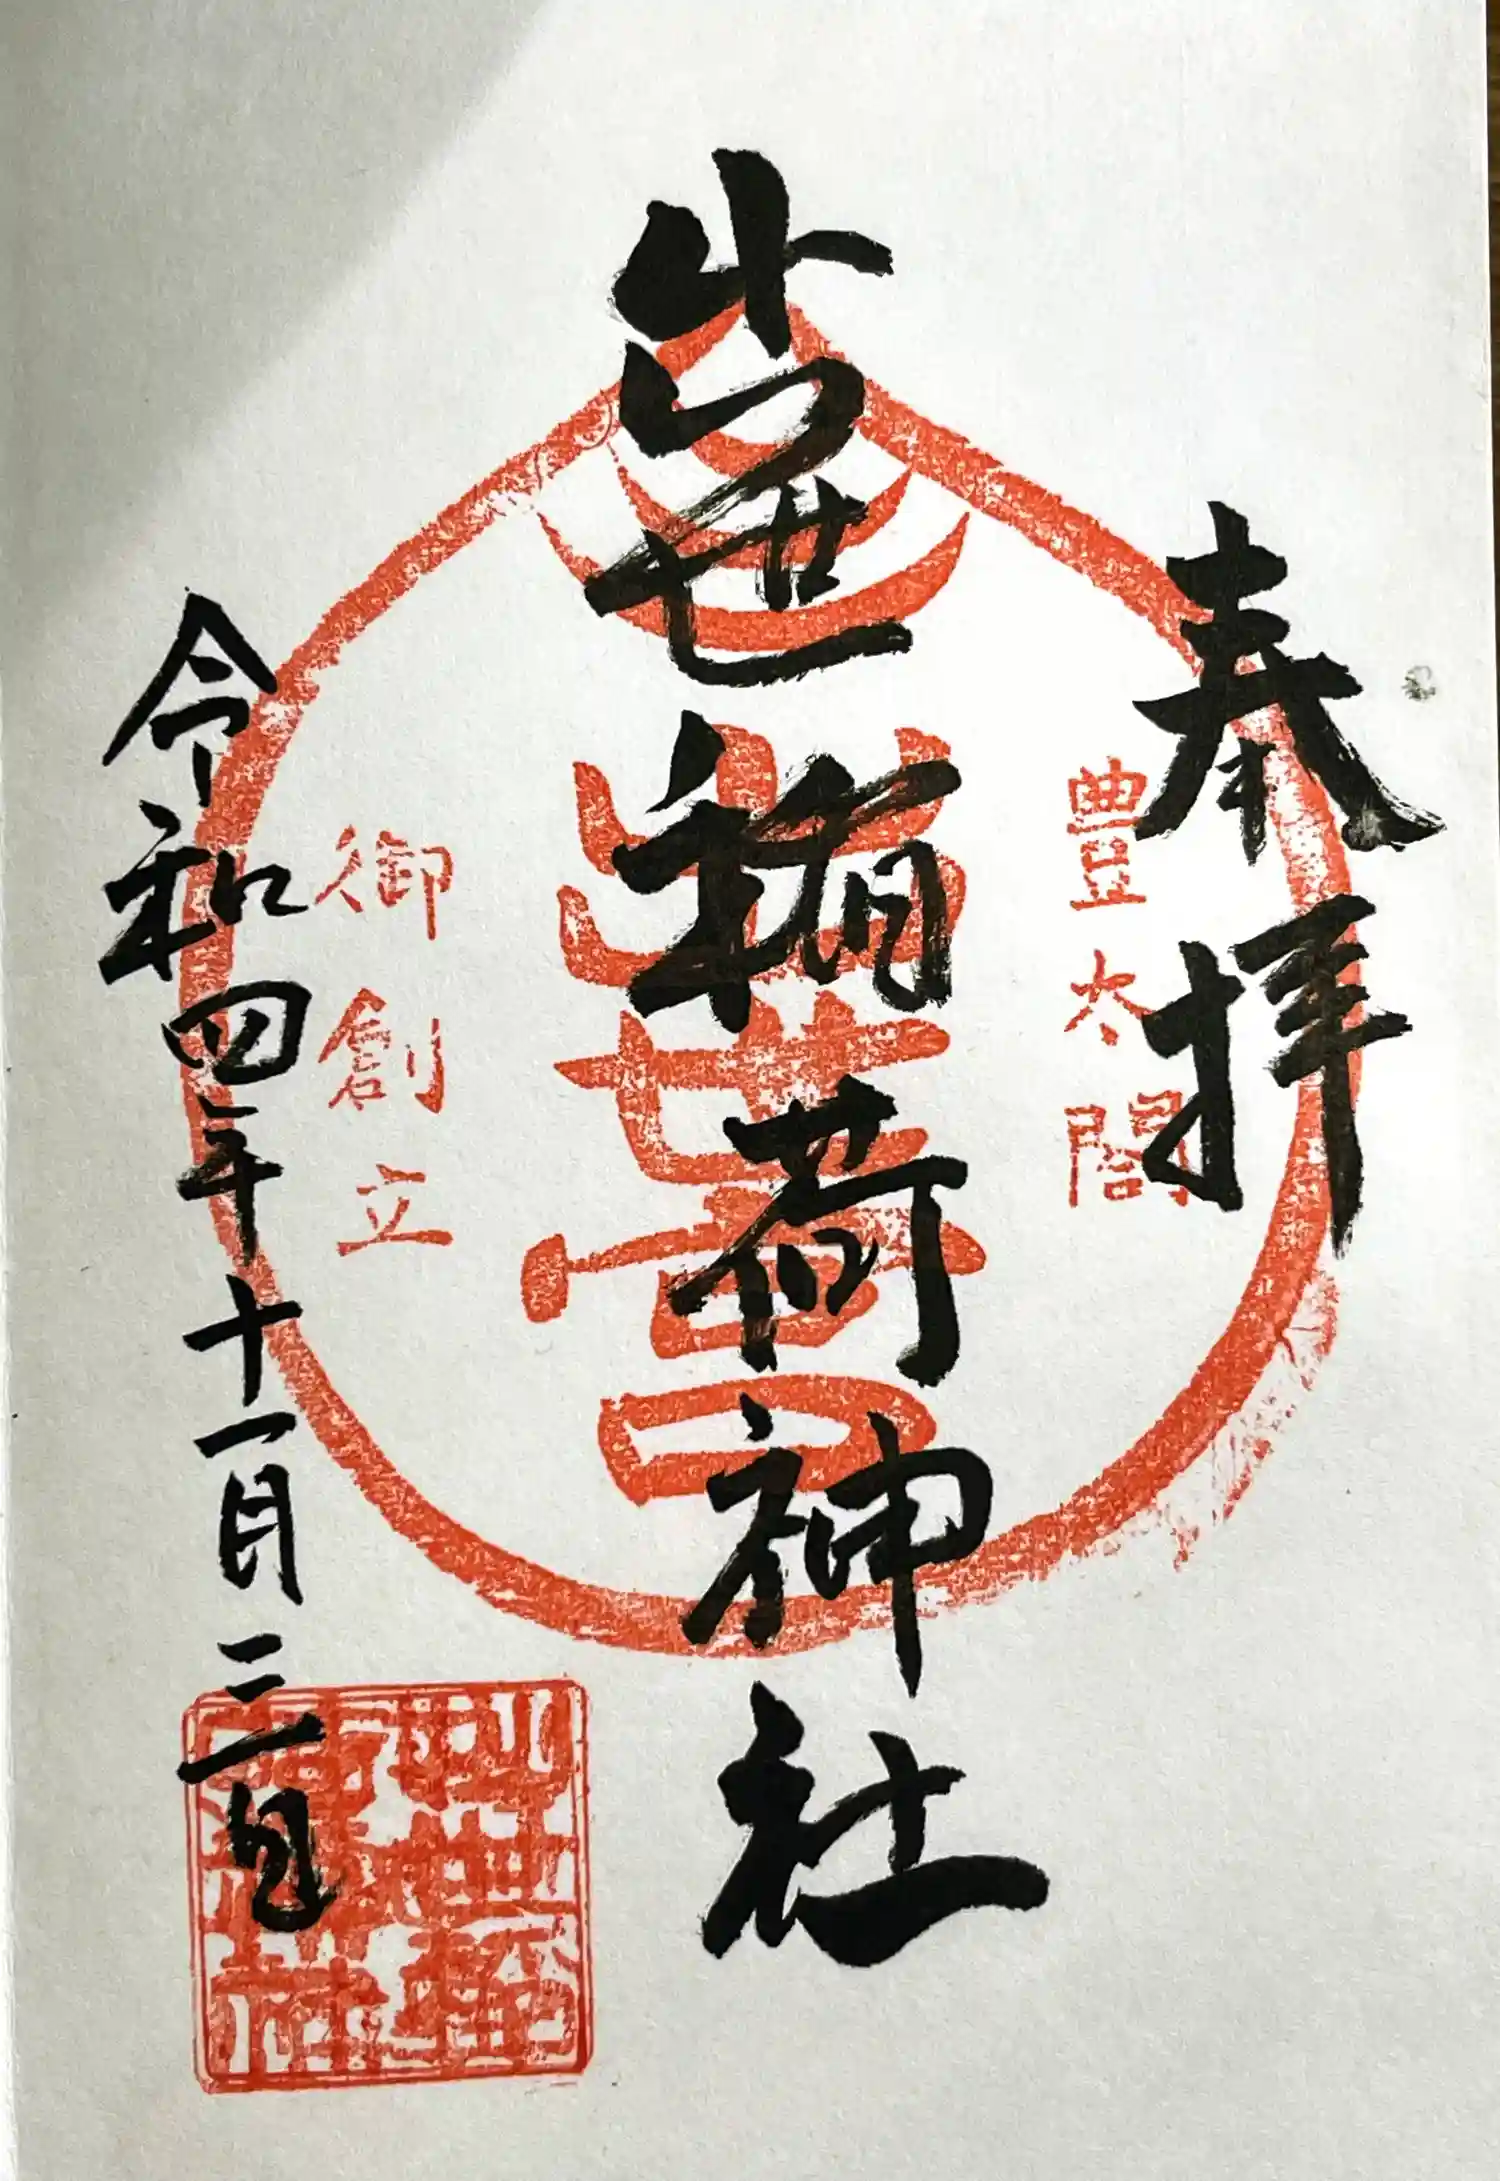 奉拝
豊太閤
出世稲荷神社
出世開運
御創立
令和四年十一月三日